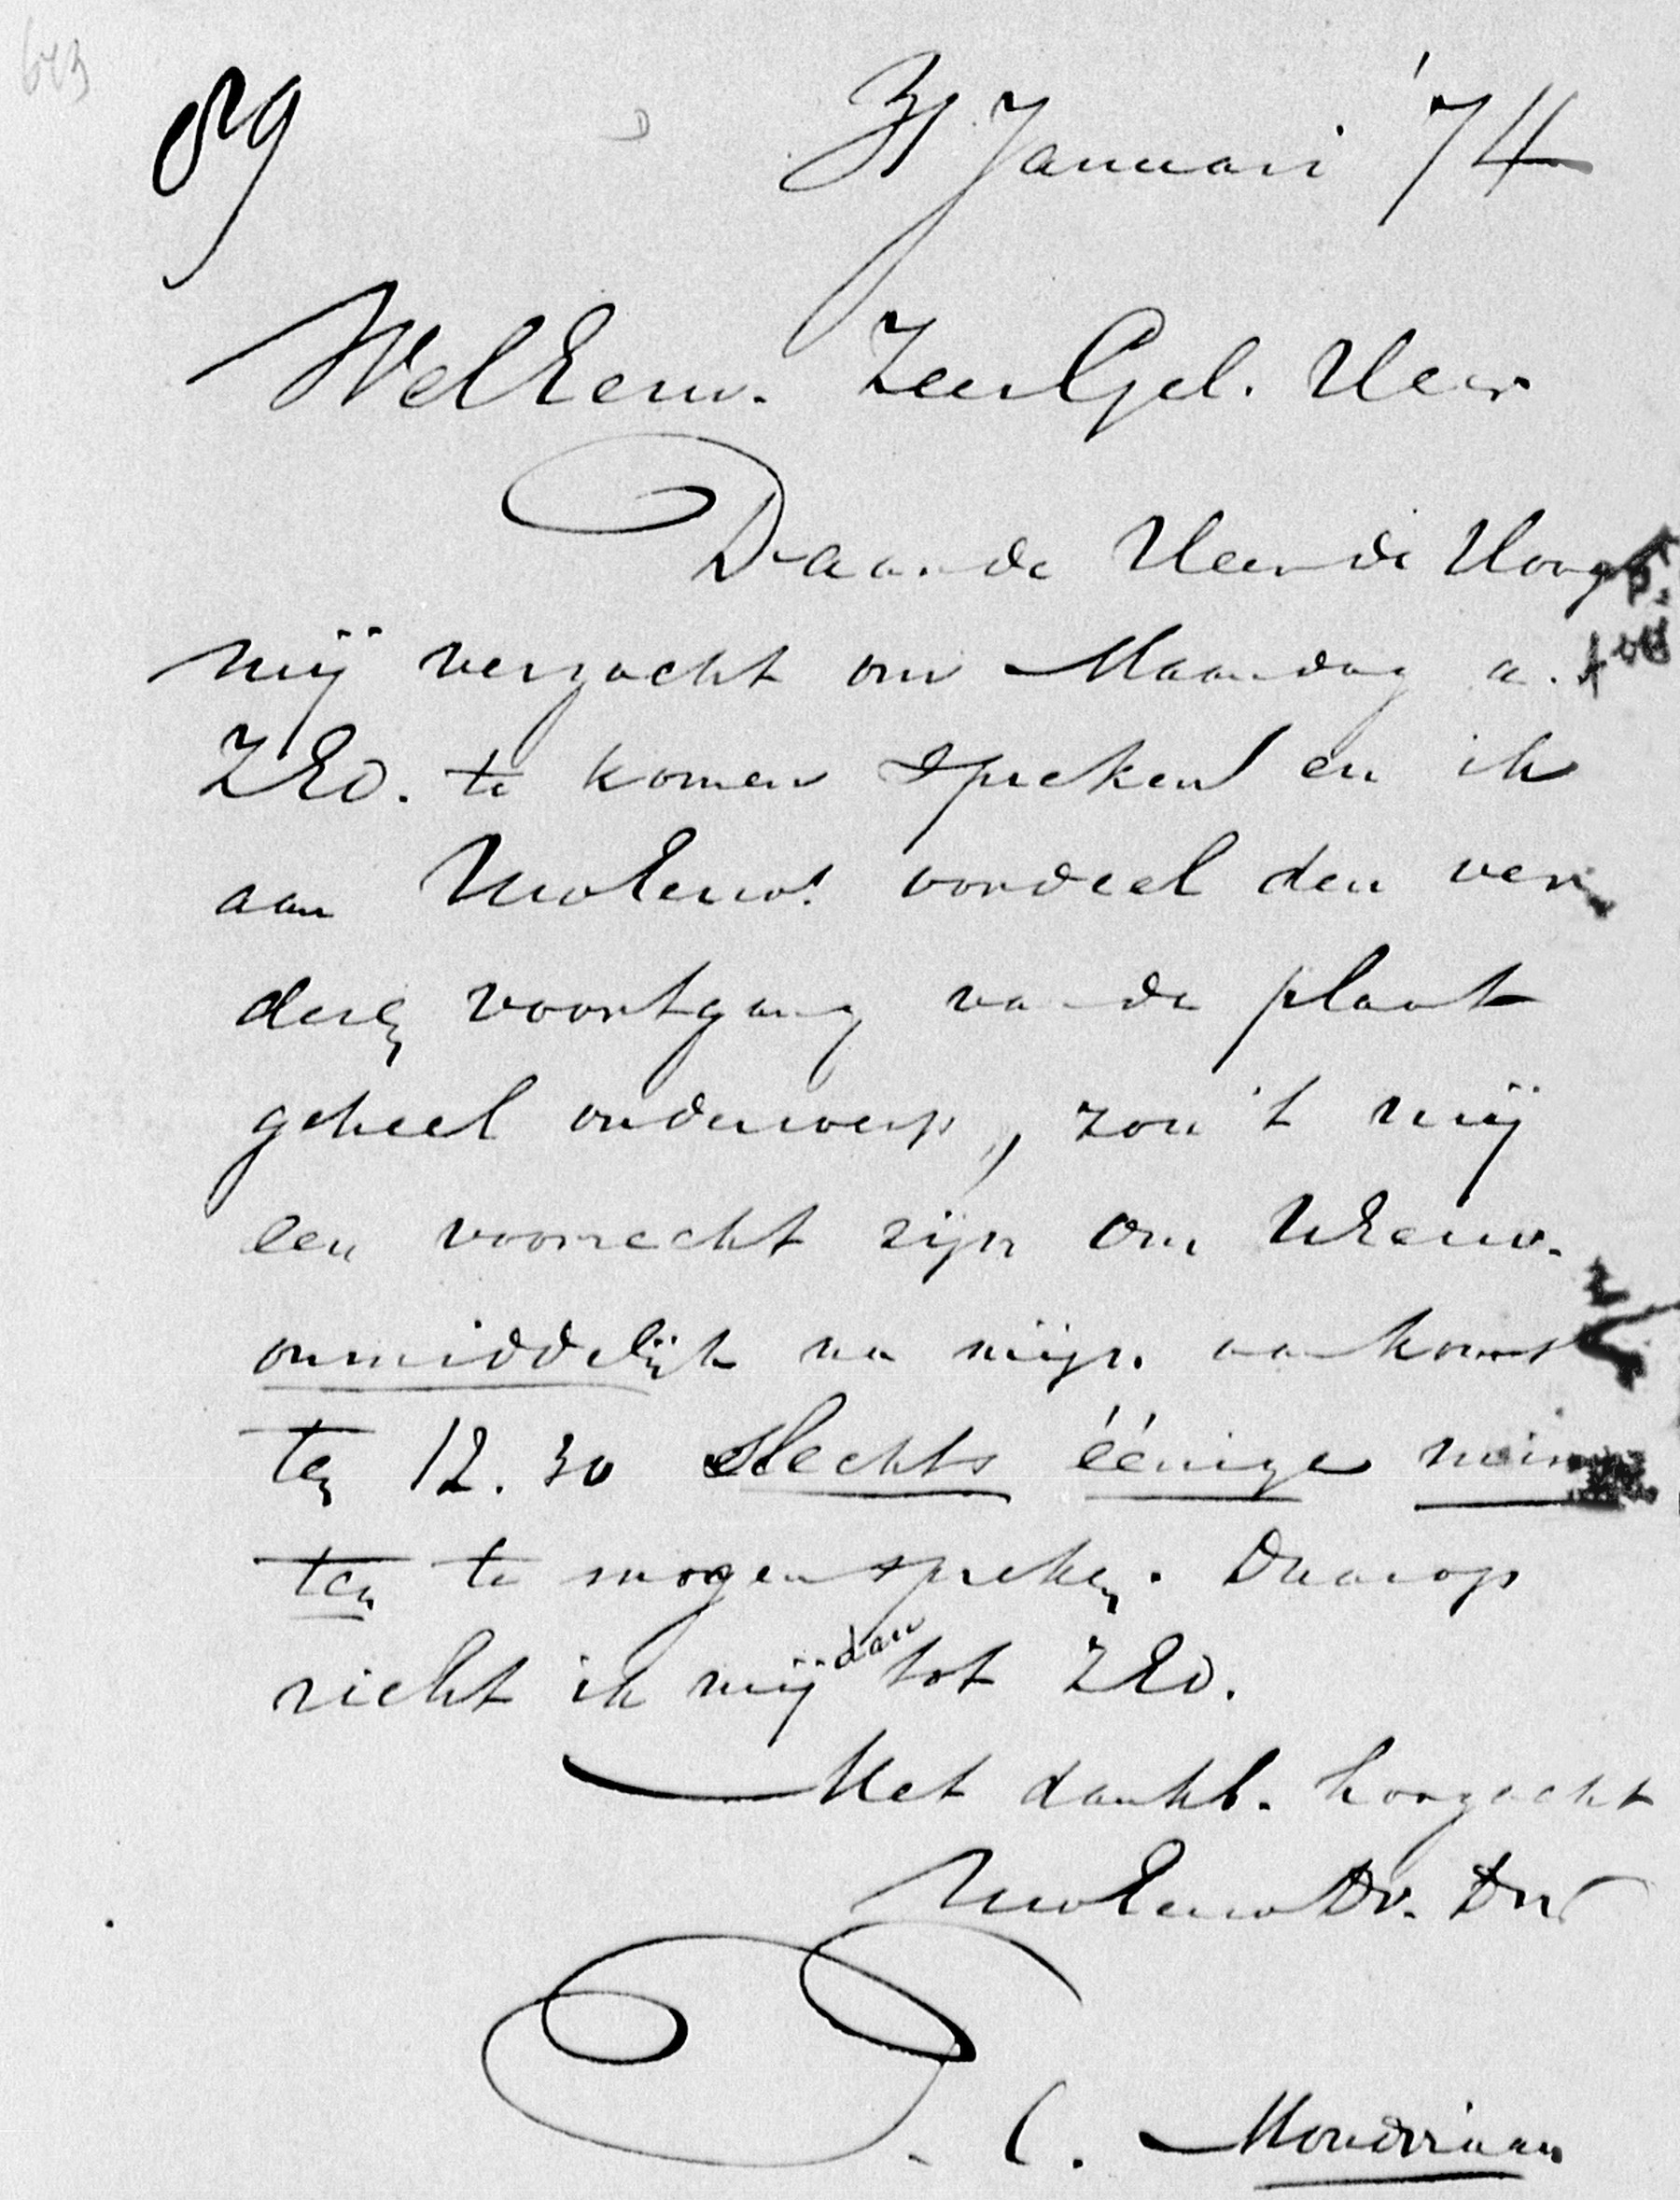 643
89
31 Januari '74
WelEerw. ZeerGel. Heer
Daar de Heer de Hoogh
mij verzocht om Maandag a.
ZEd. te komen spreken en ik
aan UwEerws. oordeel den ver
deren voortgang van de plaat
geheel onderwerp, zou 't mij
een voorrecht zijn om UEerw.
onmiddelijk na mijn aankomst
ten 12.30 slechts éénige minu
ten te mogen spreken. Daarop
richt ik mij dan tot ZEd.
Met dankb. hoogacht
UwEerw Dv. Dr
P. C. Mondriaan